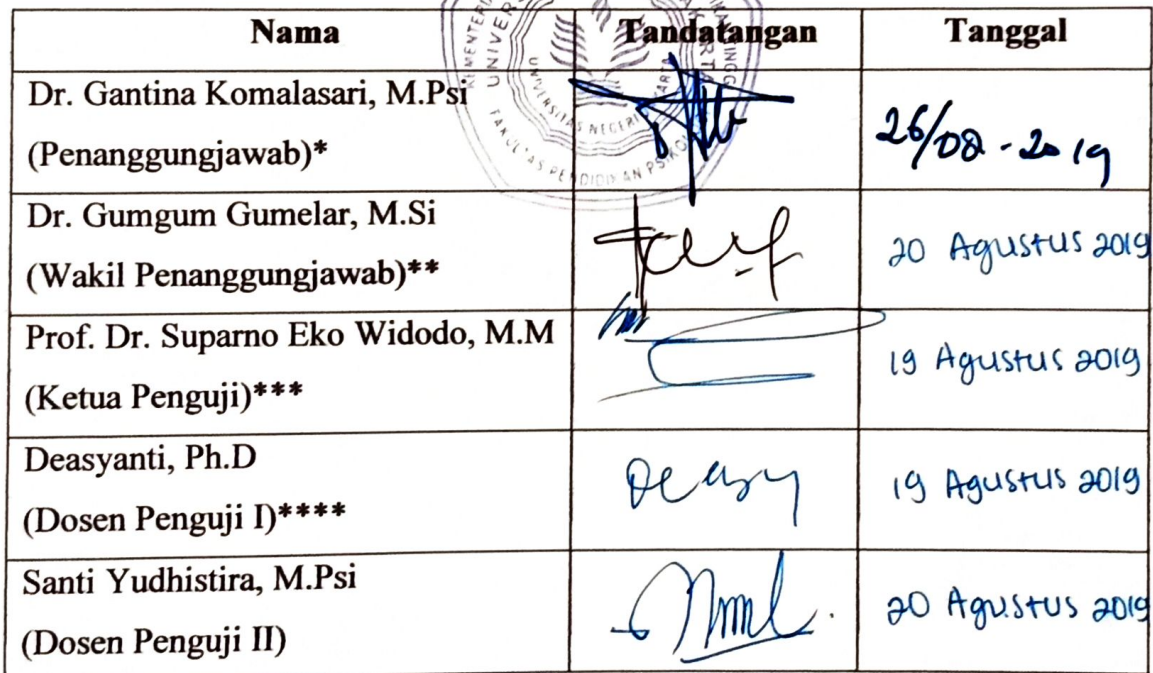 Nama Tandatangan Tanggal
Dr. Gantina Komalasari, M.Psi
(Penanggungjawab)*
26/08 - 2019
Dr. Gumgum Gumelar, M.Si
(Wakil Penanggungjawab)**
20 Agustus 2019
Prof. Dr. Suparno Eko Widodo, M.M
(Ketua Penguji)***
19 Agustus 2019
Deasyanti, Ph.D
(Dosen Penguji I)****
Deasy
19 Agustus 2019
Santi Yudhistira, M.Psi
(Dosen Penguji II)
20 Agustus 2019
UNIVERSITAS NEGERI
FAKULTAS PENDIDIKAN